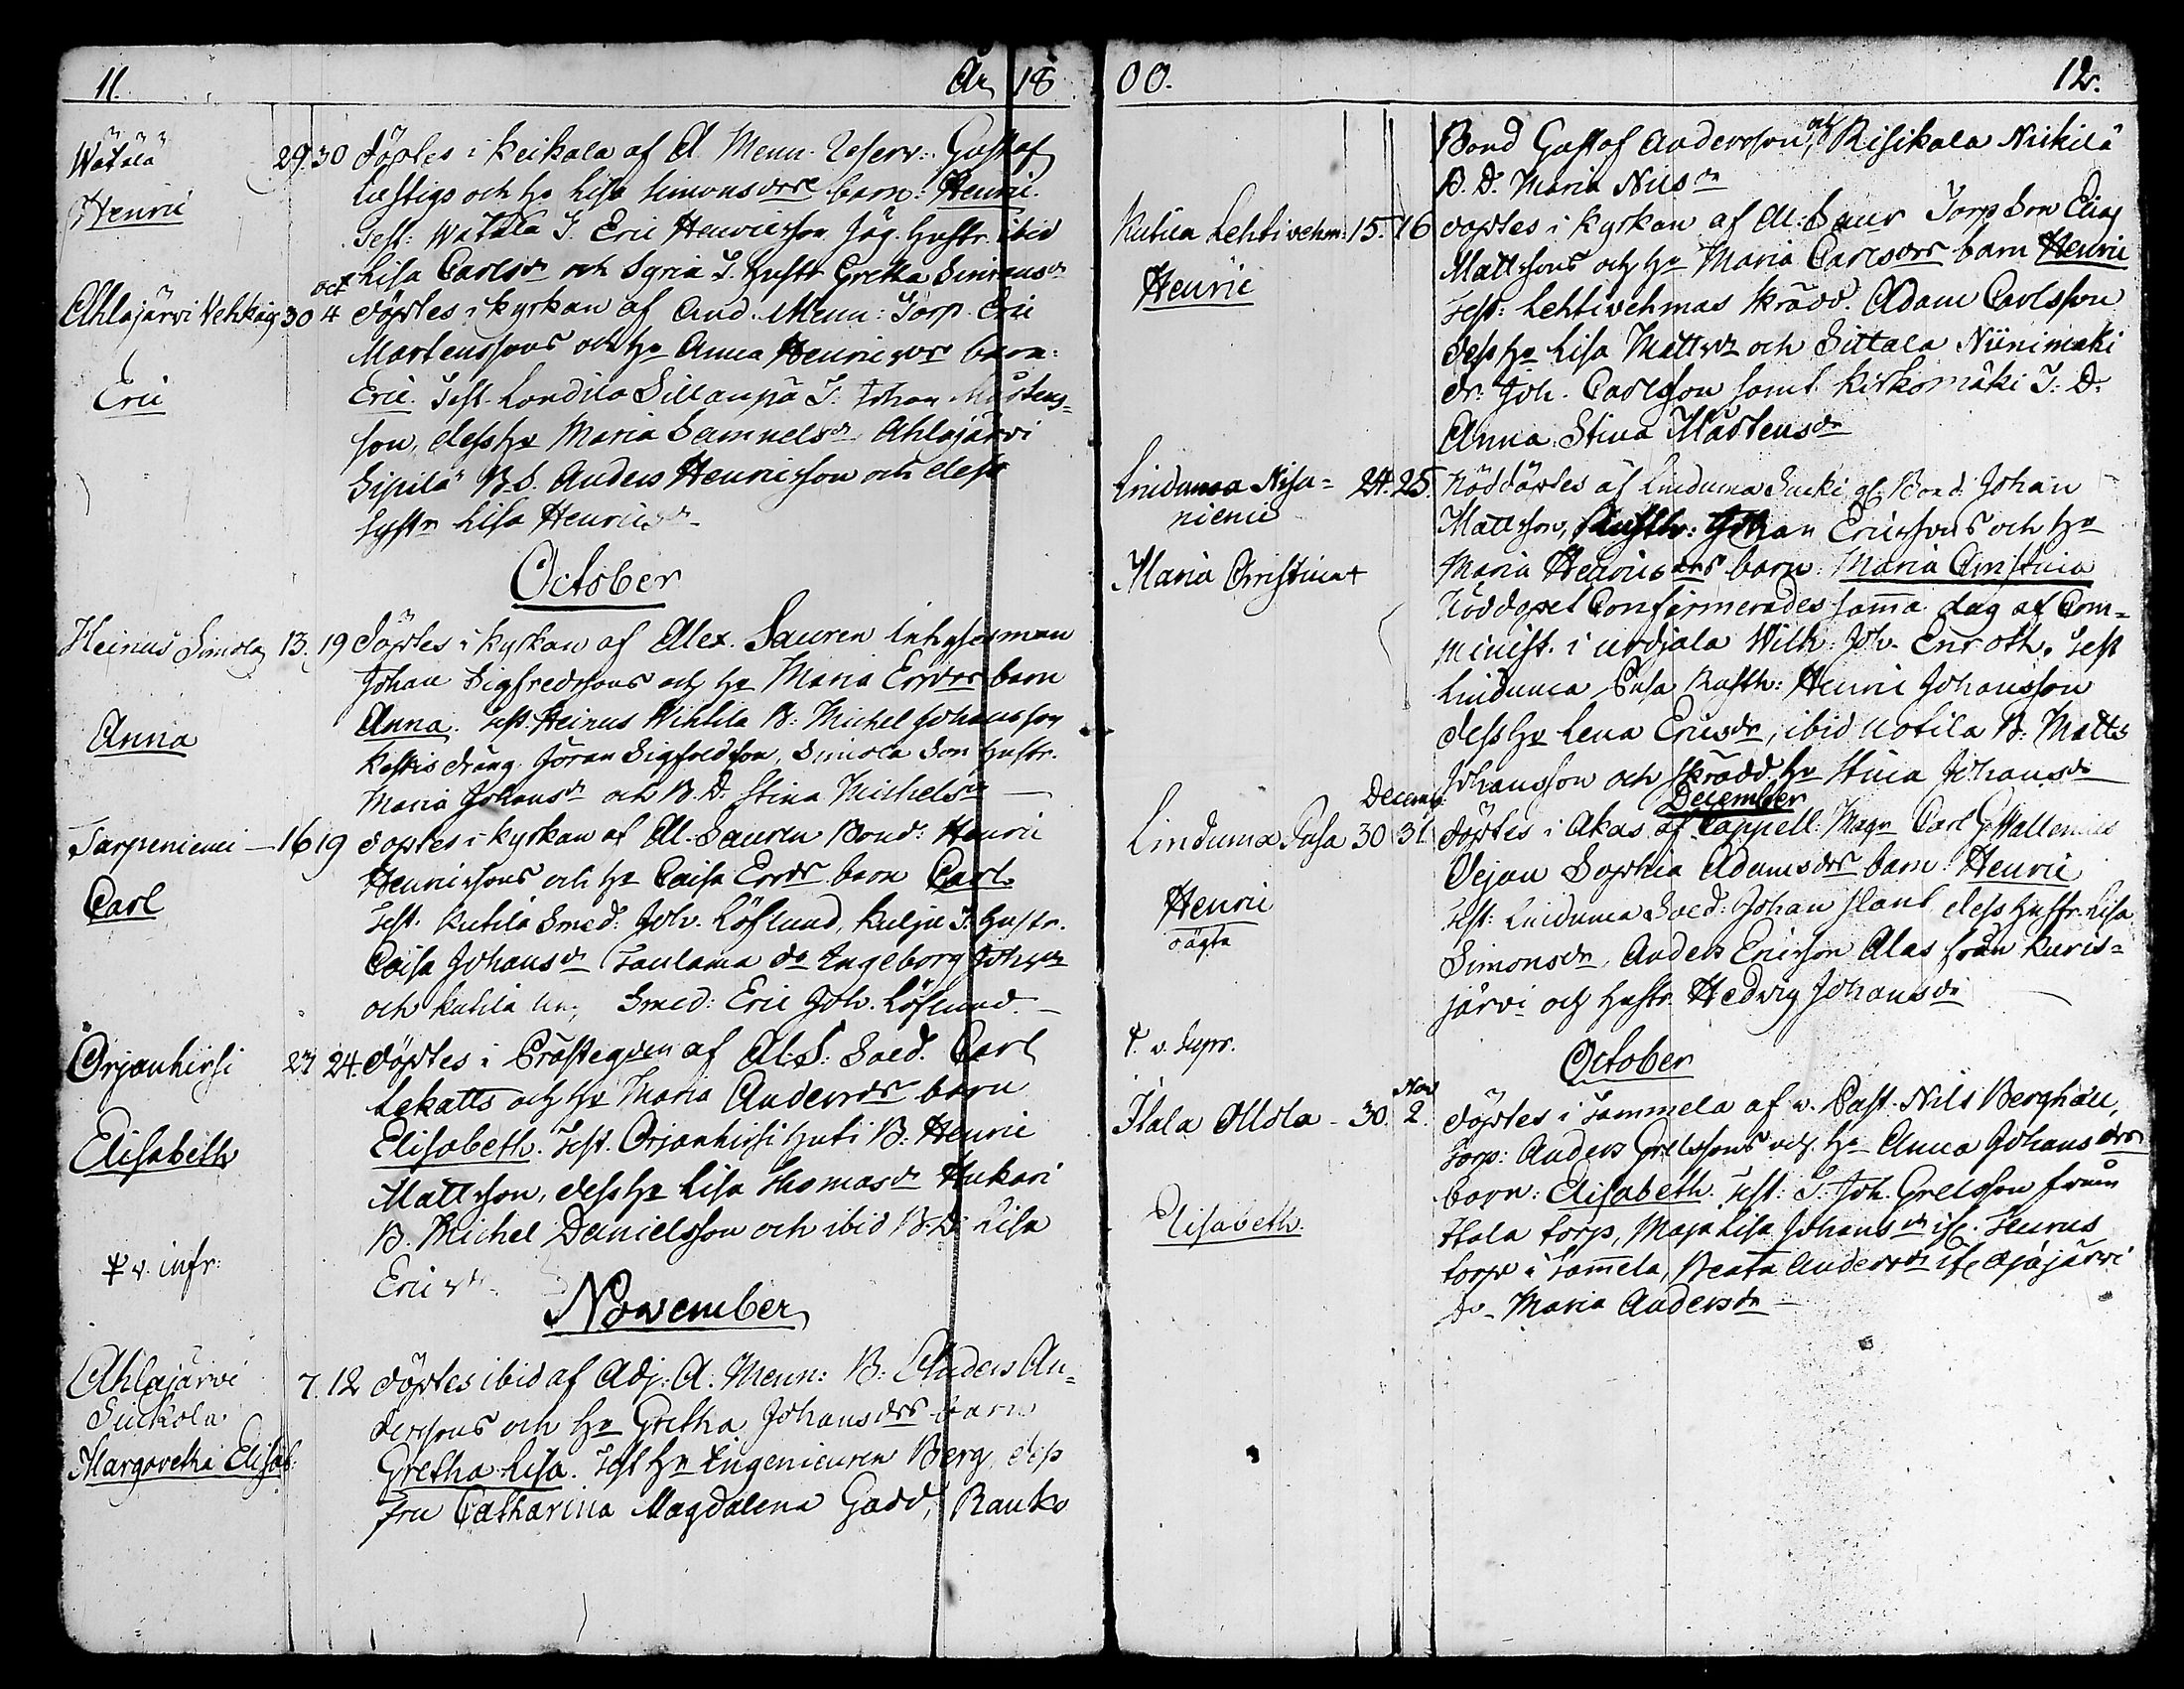 11. År 18
Wätälä 29. 30 döptes i Keikala af A. Menn. Reserv: Gustaf
Henric Lustigs och h. Lisa Simonsdrs barn: Henric.
Test: Wätälä T. Eric Henricsson Jäg. hustr. ibid
Lisa Carlsdr och Syria T. hustr Gretha Simonsdr
Oct
Ahlajärvi 30 4 döptes i kyrkan af And. Menn: Torp. Eric
Mårtenssons och h. Anna Henricsdrs barn:
Eric Eric. Test. Londila Sillanpä T. Johan Mårtens-
son, dess h. Maria Samuelsdr Ahlajärvi
Sipilä B. S. Anders Henricsson och dess
Syster Lisa Henricsdr
October
Heinus Simola 13. 19 döptes i kyrkan af Alex. Sauren Inhysesman
Johan Sigfredssons och h. Maria Ersdrs barn
Anna Anna. Test. Heinus B: Michel Johansson
dräng Jöran Sigfredsson, Simola Son hustr.
Maria Johansdr och B. D. Stina Michelsdr
Tarpeniemi 16 19 döptes i kyrkan af Al. Sauren Bond: Henric
Henricssons och h. Caisa Ersdrs barn Carl.
Carl Test. Kutila Smed: Joh. Löflund, Kulju T: hustr.
Caisa Johansdr Taulama do Ingeborg Johsdr
och Kutila Smed: Eric Joh. Löflund.
Orjanhirsi 23 24. döptes i Prästegården af Al: S: Sold. Carl
Lekatts och h. Maria Andersdrs barn
Elisabeth Elisabeth. Test. Orjanhirsi Huti B: Henric
Mattsson, dess h. Lisa Thomasdr Hukari
B. Michel Danielsson och ibid B: D: Lisa
v. infr: Ericsdr
November
Ahlajärvi 7. 12 döptes ibid af Adj: A. Menn: B: Anders An-
Suikola derssons och h. Gretha Johansdrs barn
Margaretha Elisab: Gretha Lisa. Test hr Ingenieuren Berg, dess
Fru Catharina Magdalena Gadd, Rauko
00. 12.
Bond Gustaf Andersson, och Risikala Nickilä
B. D. Maria Nilsdr
Kutila Lehtivehm: 15. 16 döptes i kyrkan af Al: Saur Torp Son Elias
Mattssons och h. Maria Carlsdrs barn Henric
Henric Test: Lehtivehmas Skrädd. Adam Carlsson
dess h. Lisa Mattsdr och Sittala Niinimäki
dr: Joh. Carlsson samt Kirkomäki T: D:
Anna Stina Mårtensdr
Linduma Nisu- 24. 25. Nöddöptes af Linduma Bond: Johan
niemi Mattsson, Rusth: Johan Ericssons och h.
Maria Christina + Maria Henricsdrs barn: Maria Christina
Nöddopet Confirmerades samma dag af Com-
minist. i Urdjala Wilh: Joh. Enroth. Test
Linduma Pusa Rusth: Henric Johansson
dess h. Lena Ericsdr, ibid Uotila B: Matts
Johansson och Skrädd. h. Stina Johansdr
Decemb: December
Linduma Pusa 30 31 döptes i Akas af Cappell: Magr Carl G. Wallenius
Pejan Sophia Adamsdrs barn: Henric
Henric Test: Linduma Sold: Johan dess hustr. Lisa
oägta Simonsdr, Anders Ericsson Alas från Kuris-
järvi och hustr. Hedvig Johansdr
v. Supr. October
Nov
Itala Ollola 30. 2. döptes i Tammela af v. Past. Nils Berghäll,
Torp: Anders Grelssons och h. Anna Johansdrs
barn: Elisabeth. Test: T: Joh. Grelsson från
Elisabeth. Itala torp, Maja Lisa Johansdr
torp i Tammela, Beata Andersdr
do Maria Andersdr